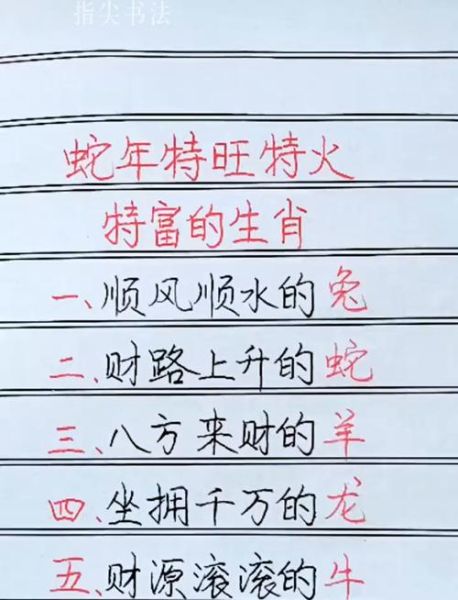 指尖书法
蛇年特旺特火
特富的生肖
一、顺风顺水的兔
二、财路上升的蛇
三、八方来财的羊
四、坐拥千万的龙
五、财源滚滚的牛